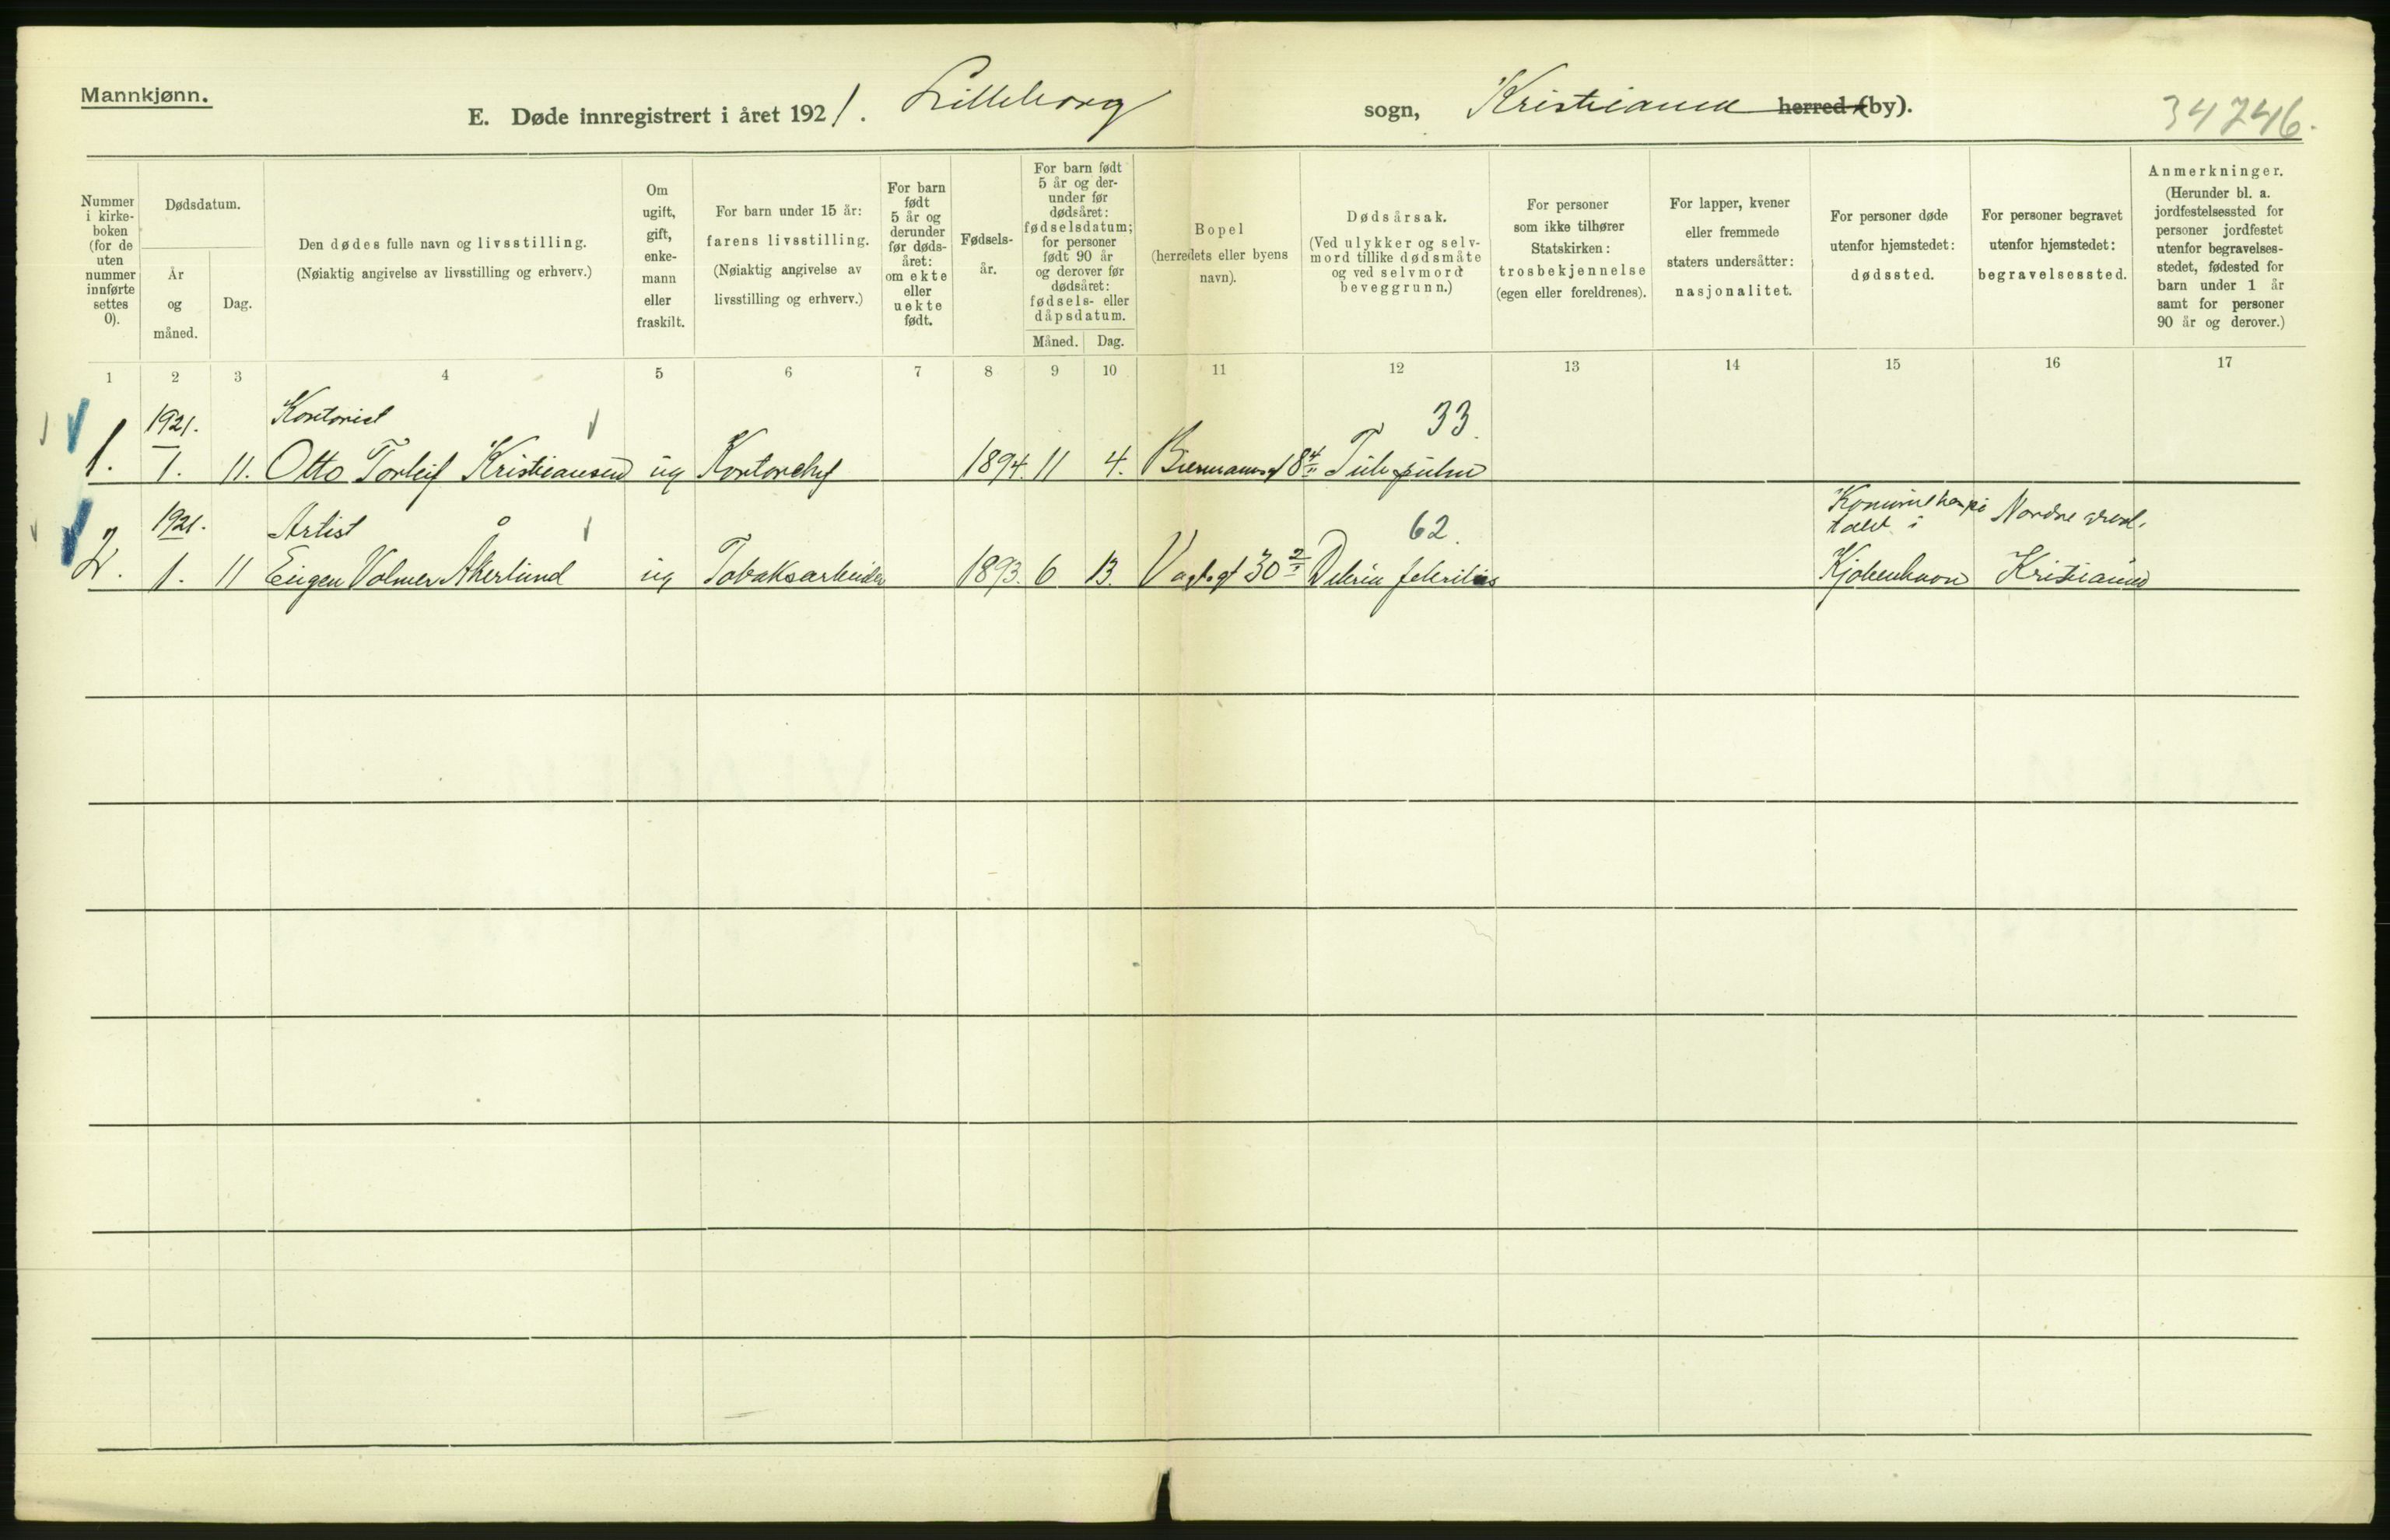 Mannkjønn.
E. Døde innregistrert i året 1921. Lilleborg sogn, Kristiania herred (by).
34746.
Nummer i kirke- boken (for de uten nummer innførte settes 0).
Dødsdatum.
År og måned.
Dag.
Den dødes fulle navn og livsstilling.
(Nøiaktig angivelse av livsstilling og erhverv.)
Om ugift, gift, enke- mann eller fraskilt.
For barn under 15 år:
farens livsstilling.
(Nøiaktig angivelse av
livsstilling og erhverv.)
For barn født 5 år og derunder før døds- året: om ekte eller uekte født.
Fødsels- år.
For barn født 5 år og der- under før dødsåret: fødselsdatum; for personer født 90 år og derover før dødsåret: fødsels- eller dåpsdatum.
Måned. Dag.
Bopel
(herredets eller byens
navn).
Dødsårsak.
(Ved ulykker og selv-
mord tillike dødsmåte
og ved selvmord
beveggrunn.)
For personer
som ikke tilhører
Statskirken:
trosbekjennelse
(egen eller foreldrenes).
For lapper, kvener
eller fremmede
staters undersåtter:
nasjonalitet.
For personer døde
utenfor hjemstedet:
dødssted.
For personer begravet
utenfor hjemstedet:
begravelsessted.
Anmerkninger.
(Herunder bl. a.
jordfestelsessted for
personer jordfestet
utenfor begravelses-
stedet, fødested for
barn under 1 år
samt for personer
90 år og derover.)
1 2 3 4 5 6 7 8 9 10 11 12 13 14 15 16 17
1921. Kontorist 33.
1. 1. 11. Otto Torleif Kristiansen ug Kontorchef 1894. 11 4. 8 4/II Tub. pulm
1921. Artist 62. Nordre
2. 1. 11 Eugen Volmer Åkerlund ug Tobaksarbeider 1893. 6 13. 30 2/I Kjøbenhavn Kristiania